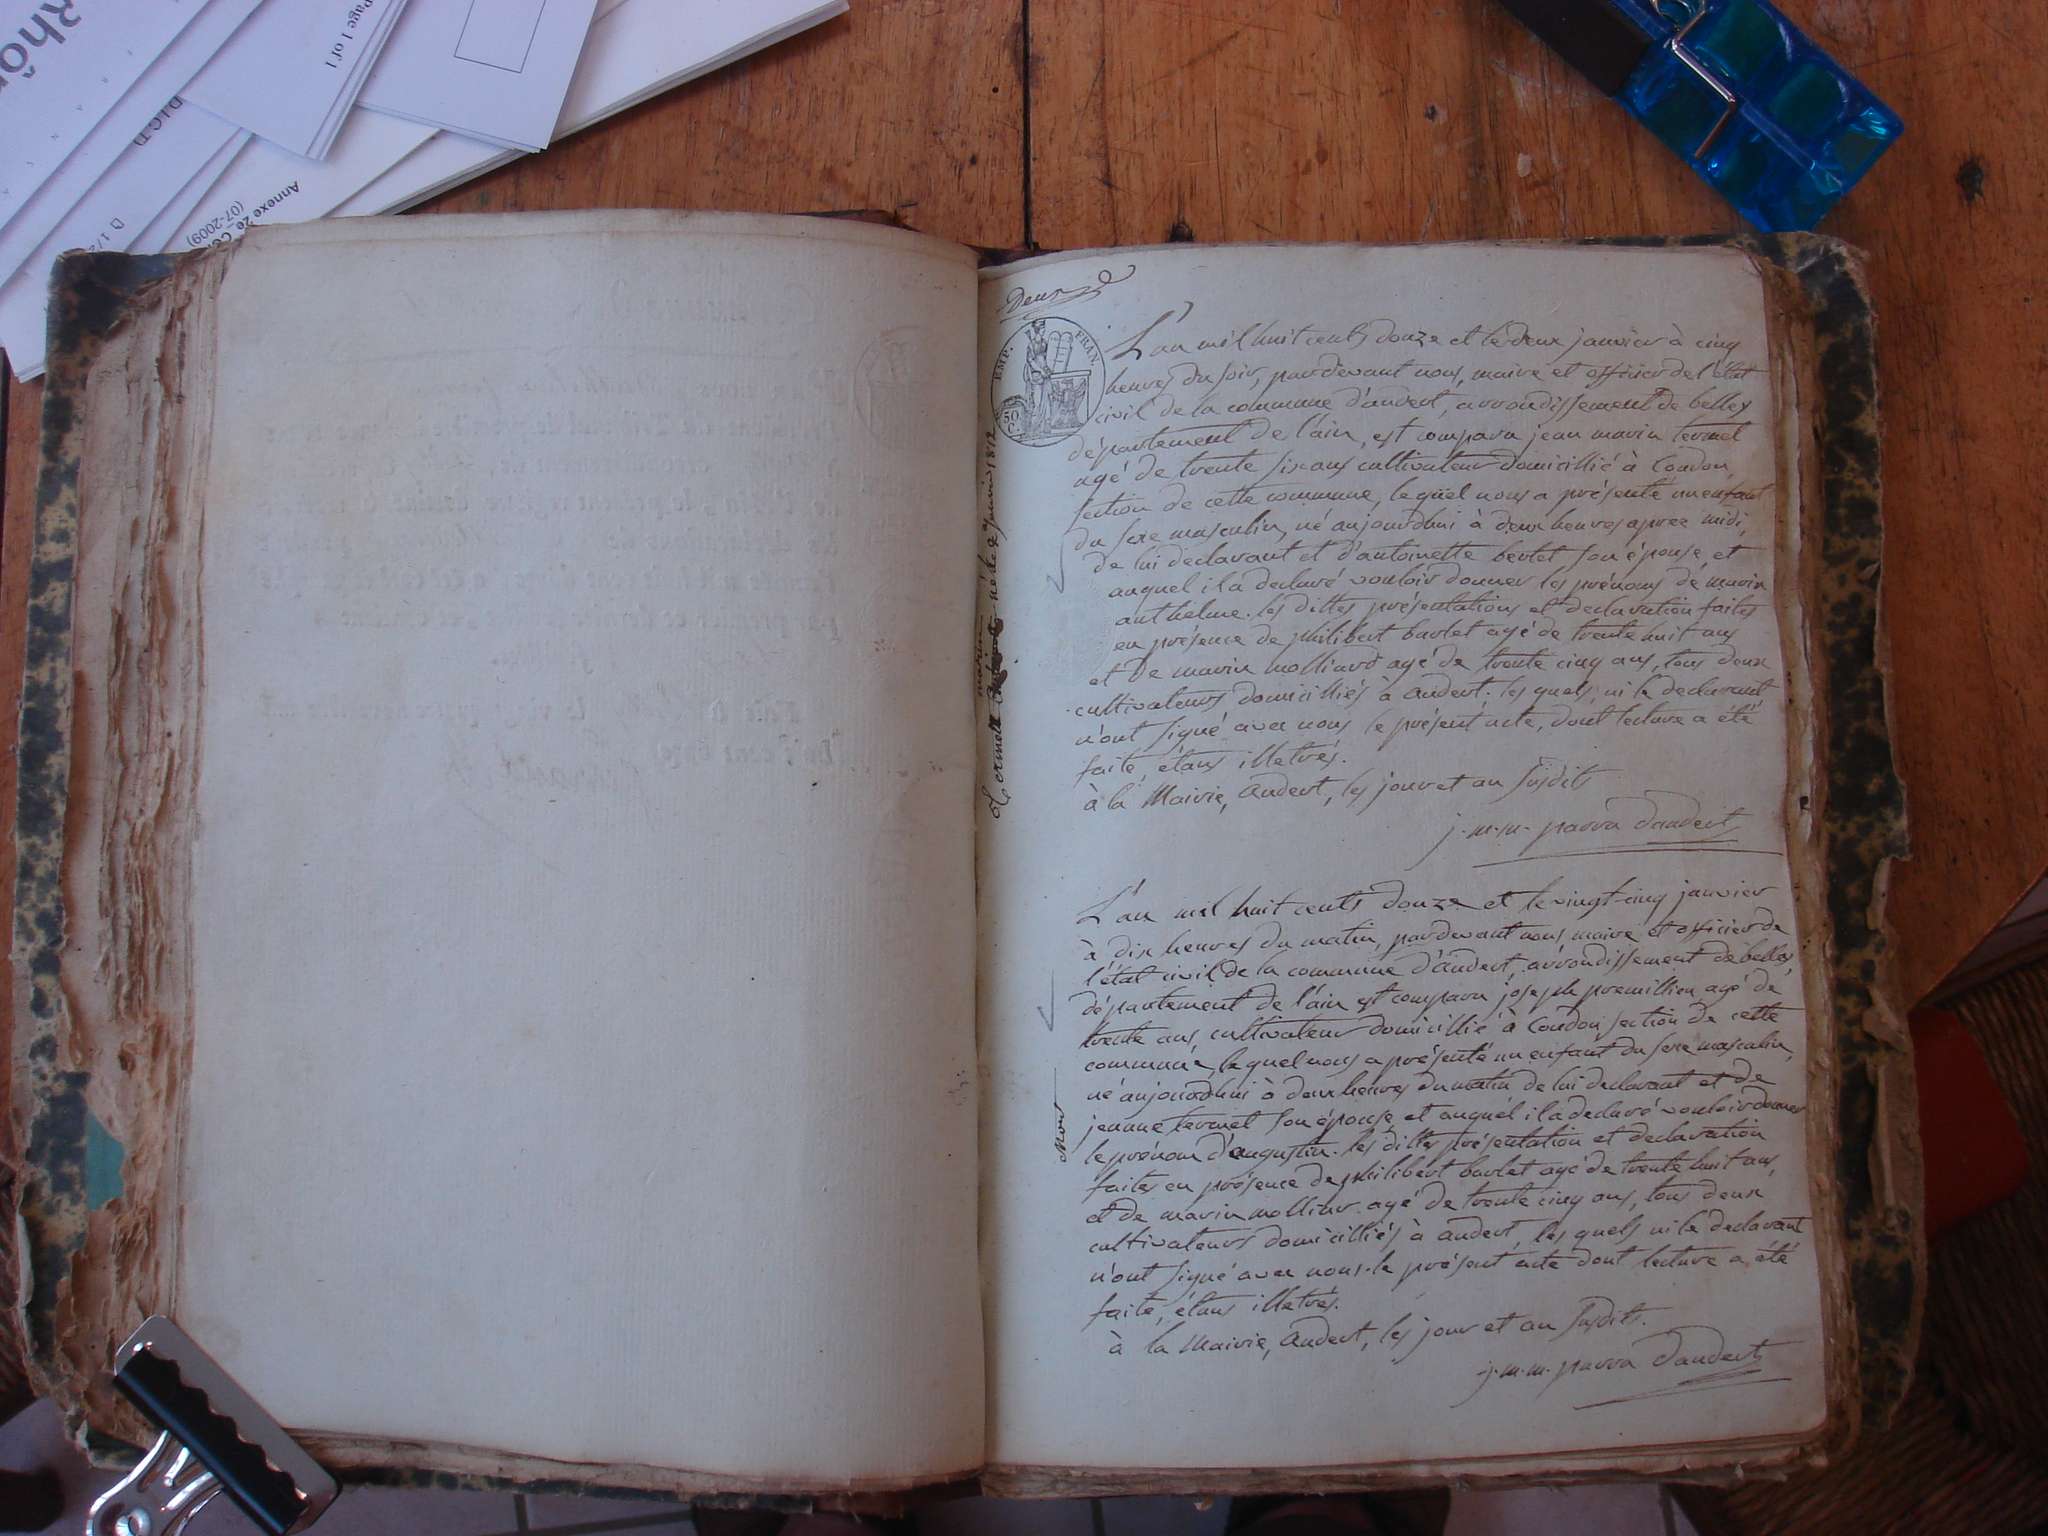 Rhôn
Page 1 of 1
DICTD
Annexe 2e
(07-2009)
Deux
EMP. FRAN.
50 C.
L'an mil huit cents douze et le deux janvier à cinq
heures du soir, pardevant nous, maire et officier de l'état
civil de la commune d'andert, arrondissement de belley
département de l'ain, est comparu jean marin termel
agé de trente six ans cultivateur domicillié à Condon,
section de cette commune, lequel nous a présenté un enfant
du sexe masculin, né aujourdhui à deux heures apree midi,
de lui déclarant et d'antoinette bertet son épouse et
auquel il a declaré vouloir donner les prénoms de marin
anthelme. les dittes présentations et declaration faites
en présence de philibert barlet agé de trente huit ans
et de marin molliard agé de trente cinq ans, tous deux
cultivateurs domicilliés à andert. les quels ni le declarant
n'ont signé avec nous le présent acte, dont lecture a été
faite, étans illetrés.
à la Mairie, andert, les jour et an susdits
j. m. m. parra dandert
marin
né le 2 janvier 1812
L'an mil huit cents douze et le vingt-cinq janvier
à dix heures du matin, pardevant nous maire et officier de
l'état civil de la commune d'andert, arrondissement de belley
département de l'ain est comparu joseph premillieu agé de
trente ans, cultivateur domicillié à Condon, section de cette
commune, lequel nous a présenté un enfant du sexe masculin,
né aujourdhui à deux heures du matin de lui declarant et de
jeanne termel son épouse, et auquel il a declaré vouloir donner
le prénom d'augustin. les dittes présentation et declaration
faites en présence de philibert barlet agé de trente huit ans,
et de marin molliar agé de trente cinq ans, tous deux
cultivateurs domicilliés à andert, les quels ni le declarant
n'ont signé avec nous le présent acte dont lecture a été
faite, étans illetrés.
à la Mairie, andert, les jour et an susdits.
j. m. m. parra dandert
mort